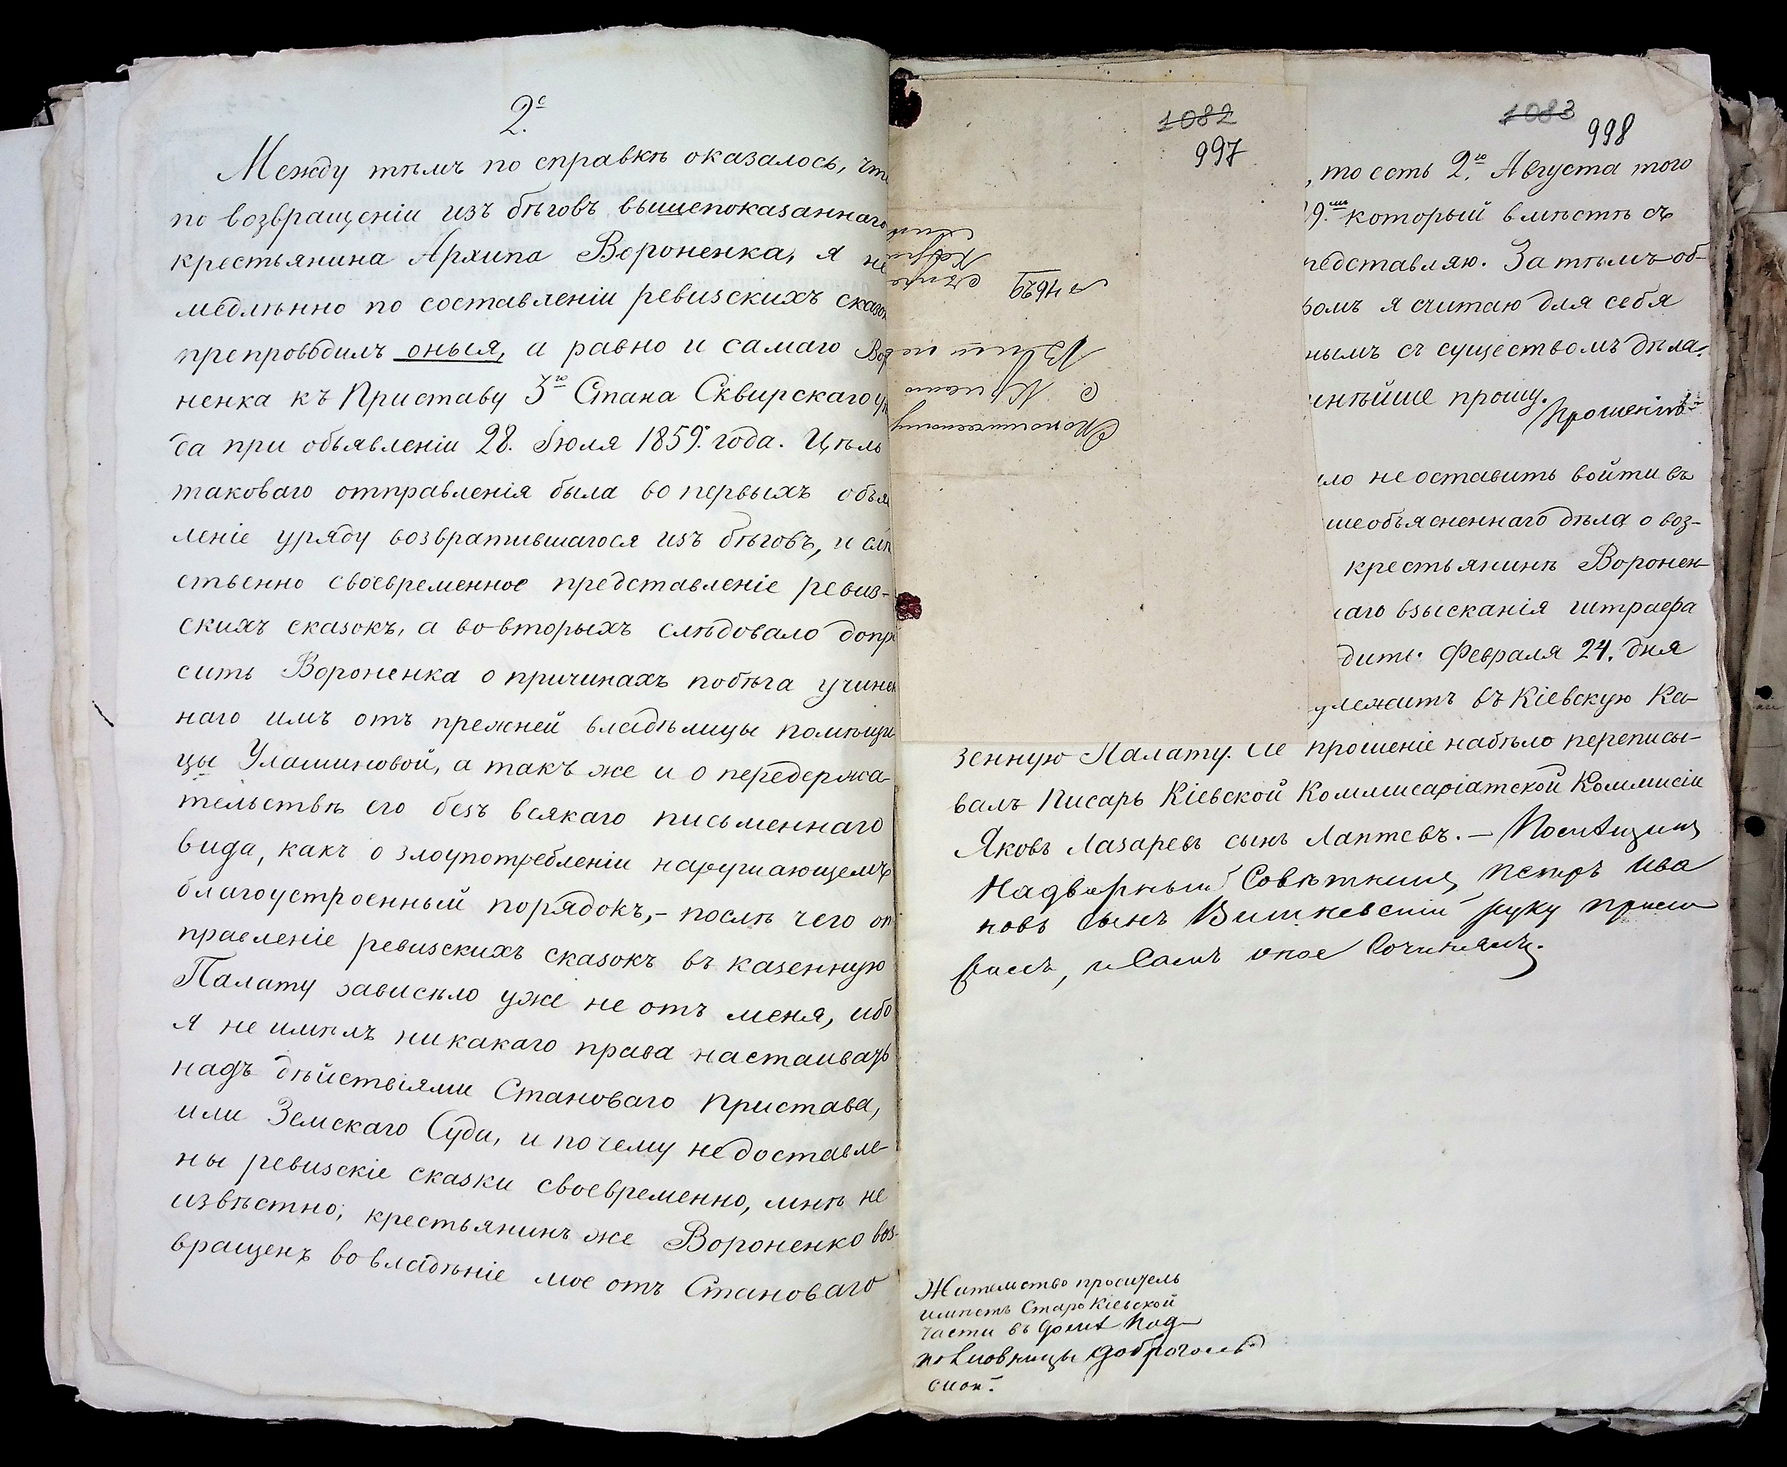 2.е
Между тѣмъ по справкѣ оказалось, что
по возвращеніи изъ бѣговъ вышепоказаннаго
крестьянина Архипа Вороненка, я не
медлѣнно по составленіи ревизскихъ сказо
препроводилъ оныя, а равно и самаго Во
ненка къ Приставу 3го Стана Сквирскаго у
да при объявленіи 28. Іюля 1859. года. Цѣль
таковаго отправленія была во первыхъ объя
леніе уряду возвратившагося изъ бѣговъ, и слѣ
ственно своевременное представленіе ревиз-
скихъ сказокъ, а во-вторыхъ слѣдовало допр
сить Вороненка о причинахъ побѣга учинен
наго имъ отъ прежней владѣлицы помѣщи
цы Уламиновой, а такъ же и о передержа-
тельствѣ его безъ всякаго письменнаго
вида, какъ о злоупотребленіи нарушающемъ
благоустроенный порядокъ,- послѣ чего от
правленіе ревизскихъ сказокъ въ казенную
Палату зависѣло уже не отъ меня, ибо
я не имѣлъ никакаго права настаивать
надъ дѣйствіями Становаго Пристава,
или Земскаго Суда, и почему не доставле-
ны ревизскіе сказки своевременно, мнѣ не
извѣстно; крестьянинъ же Вороненко воз-
вращенъ во владѣніе мое отъ Становаго
1082
997
№ 4629
1083
998
, то есть 2.го Августа того
9.ше который вмѣстѣ съ
редставляю. За тѣмъ об-
ромъ я считаю для себя
нымъ съ существомъ дѣла.
ннѣйше прошу.
Прошеніѣ
ло не оставить войти въ
шеобъясненнаго дѣла о воз-
крестьянинѣ Воронен-
аго взысканія штрафа
дить. Февраля 24. дня
длежитъ въ Кіевскую Ка-
зенную Палату. Сіе прошеніе набѣло переписы-
валъ Писарь Кіевской Коммисаріатской Коммисіи
Яковъ Лазаревъ сынъ Лаптевъ. — Помѣщикъ
Надворный Совѣтникъ Петръ Ива
новъ сынъ Вишневскій руку прило
жилъ, и самъ оное сочинялъ.
Жительство проситель
имѣетъ Старокіевской
части въ домѣ Под-
полковницы Доброволь
ской.